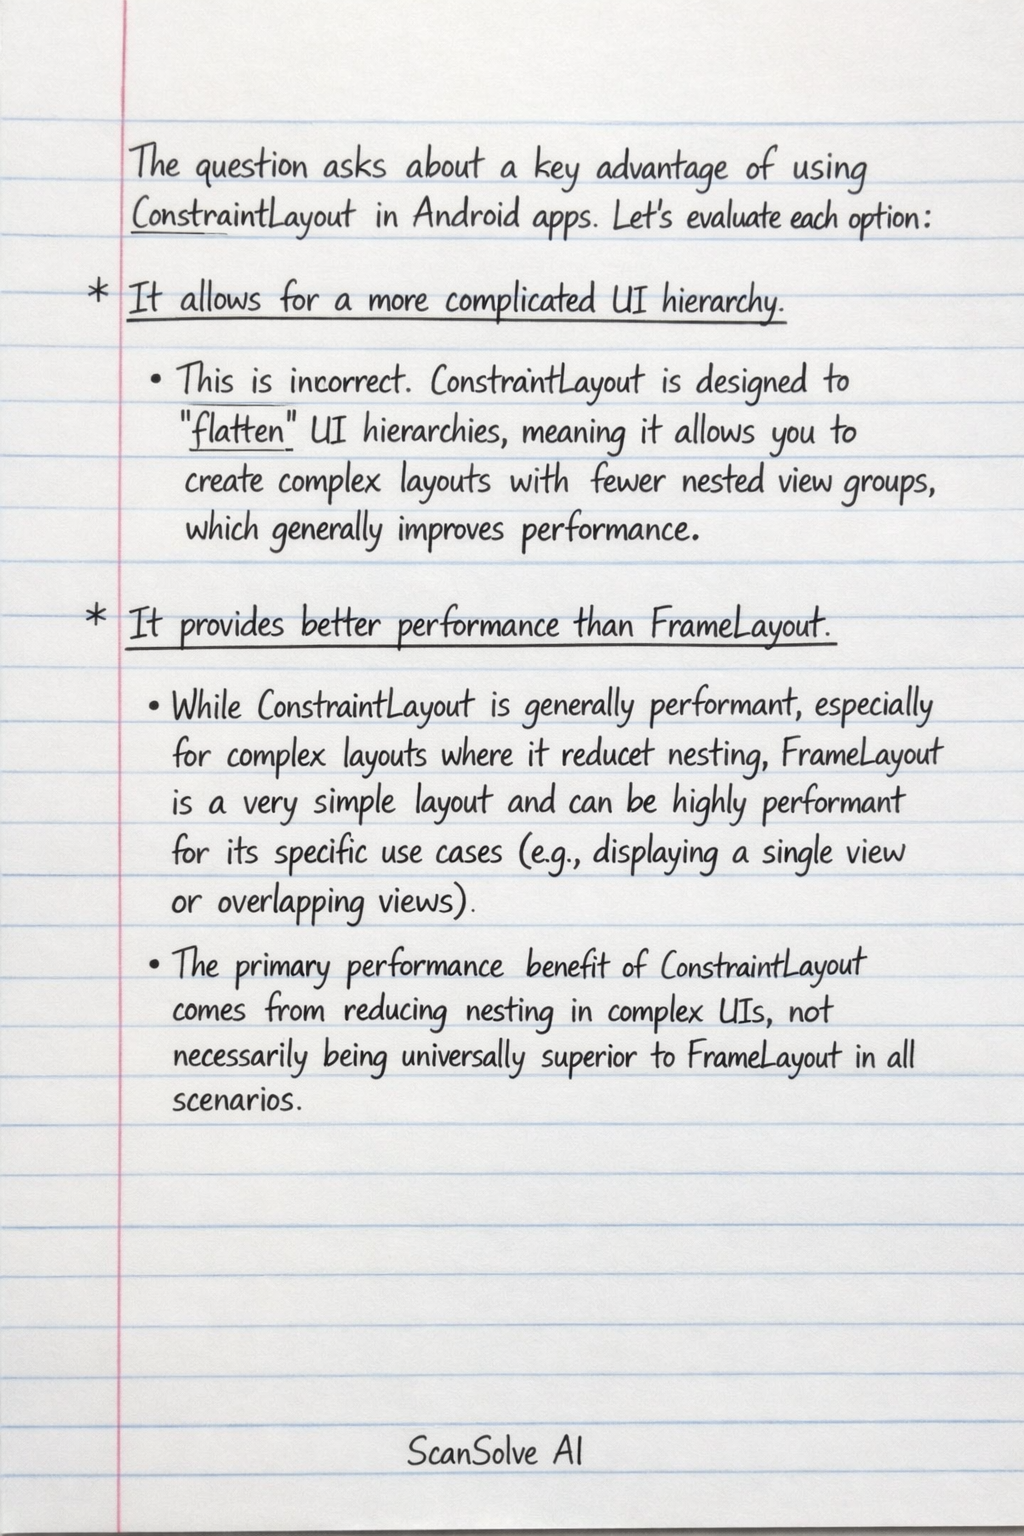 The question asks about a key advantage of using
ConstraintLayout in Android apps. Let's evaluate each option:
* It allows for a more complicated UI hierarchy.
• This is incorrect. ConstraintLayout is designed to
"flatten" UI hierarchies, meaning it allows you to
create complex layouts with fewer nested view groups,
which generally improves performance.
* It provides better performance than FrameLayout.
• While ConstraintLayout is generally performant, especially
for complex layouts where it reducet nesting, FrameLayout
is a very simple layout and can be highly performant
for its specific use cases (e.g., displaying a single view
or overlapping views).
• The primary performance benefit of ConstraintLayout
comes from reducing nesting in complex UIs, not
necessarily being universally superior to FrameLayout in all
scenarios.
ScanSolve AI